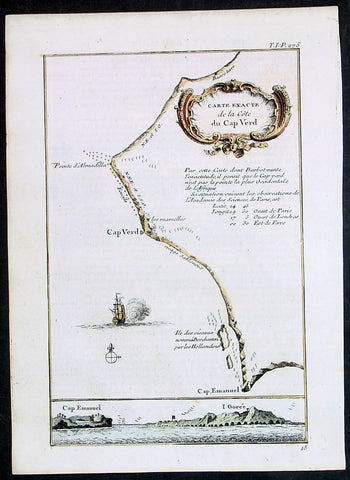 T.I.P. 275
CARTE EXACTE
de la Côte
du Cap Verd
Pointe d'Almadilla
Par cette Carte dont Barbot vante
l'exactitude, il paroit que le Cap verd
n'est pas la pointe la plus Occidentale
de l'Afrique
Sa situation suivant les observations de
l'Academie des Sciences, de Paris, est
Latit. 14 45
Longit. 19 30 Ouest de Paris
17 5 Ouest de Londres
00 30 Est de Ferro
les mamelles
Cap Verd
Ile des oiseaux
par les Hollandois
Cap Emanuel
Cap Emanuel
I Gorée